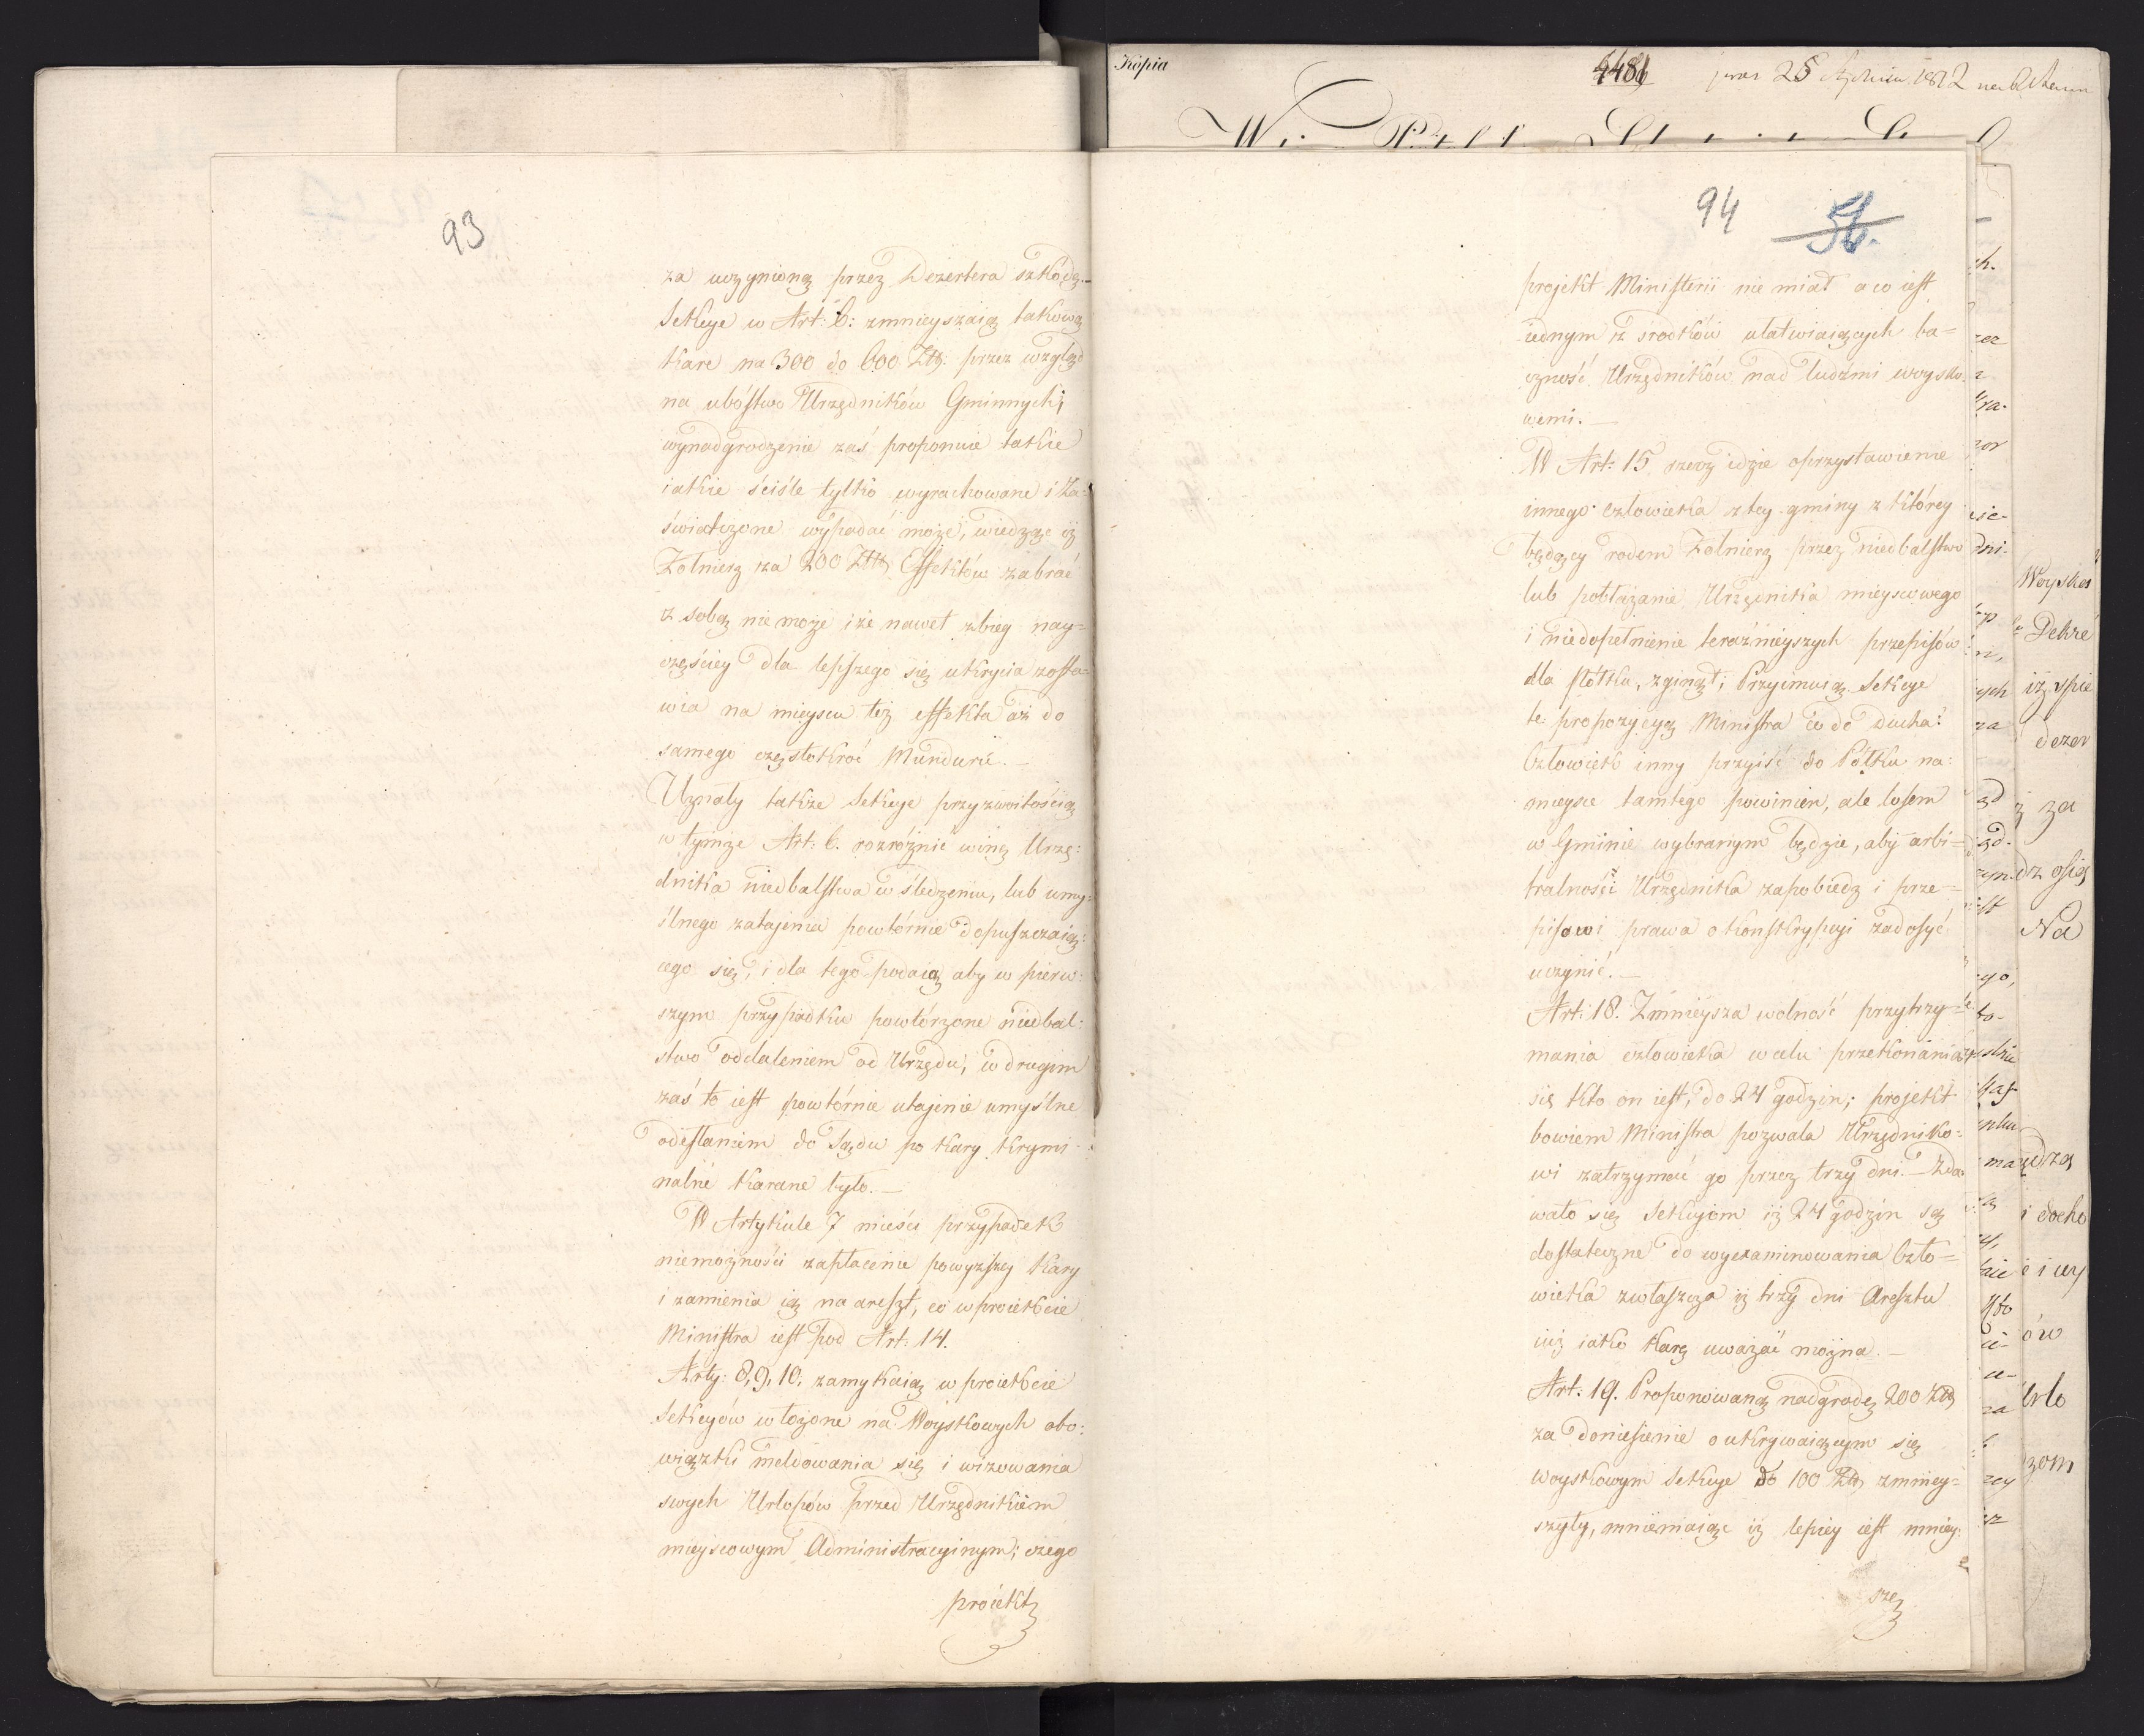 93
za uczynioną przez Dezertera szkodę.—
Sekcye w Art: 6: zmnieyszaią takową
karę na 300 do 600 Złł: przez wzgląd
na ubóstwo Urzędników Gminnych;
wynadgrodzenie zaś proponuie takie
iakie ściśle tylko wyrachowane i za=
świadczone wypadać może, wiedząc iż
Żołnierz za 200 Złł Effektów zabrać
z sobą nie może i że nawet zbieg nay=
częściey dla lepszego się ukrycia zosta=
wia na mieyscu też effekta aż do
samego częstokroć Munduru.—
Uznały także Sekcye przyzwoitością
w tymże Art: 6. rozróżnić winę Urzę:
dnika niedbalstwa w śledzeniu, lub umy=
ślnego zatajenia powtórnie dopuszczaią:
cego się, i dla tego podaią aby w pierw:
szym przypadku powtórzone niedbal:
stwo oddaleniem od Urzędu; w drugim
zaś to iest powtórnie utajenie umyślne
odesłaniem do Sądu po kary krymi=
nalne karane było.—
W Artykule 7 mieści przypadek
niemożności zapłacenia powyższey kary
i zamienia ią na areszt, co w proiekcie
Ministra iest pod Art: 14.
Arty: 8, 9, 10, zamykaią w proiekcie
Sekcyów włożone na Woyskowych obo:
wiązki meldowania się i wizowania
swych Urlopów przed Urzędnikiem
mieyscowym Administracyinym; czego
proiekt
Kopia
4481
25 Stycznia 1812
94 56.
projekt Ministerii nie miał a co iest
iednym z srodków ułatwiaiących ba=
czność Urzędników nad ludźmi woysko=
wemi.—
W Art: 15 rzecz idzie o przystawienie
innego człowieka z tey gminy z którey
będący rodem Żołnierz przez niedbalstwo
lub pobłażanie Urzędnika mieyscowego
i niedopełnienie teraźnieyszych przepisów
dla Półku, zginął; Przyimuią Sekcye
tę propozycyą Ministra co do ducha:
Człowiek inny przyiść do Półku na=
mieysce tamtego powinien, ale losem
w Gminie wybranym będzie, aby arbi=
tralności Urzędnika zapobiedz i prze=
pisowi prawa o konskrypcyi zadosyć
uczynić.—
Art: 18. Zmnieysza wolność przytrzy=
mania człowieka w celu przekonania
się kto on iest, do 24 godzin; projekt
bowiem Ministra pozwala Urzędniko=
wi zatrzymać go przez trzy dni.— Zda=
wało się Sekcyom iż 24 godzin są
dostateczne do wyexaminowania Czło=
wieka zwłaszcza iż trzy dni Aresztu
iuż iako karę uważać można.—
Art: 19. Proponowaną nadgrodę 200 Złł
za doniesienie o ukrywaiącym się
woyskowym Sekcye do 100 Złł zmniey=
szyły, mniemaiąc iż lepiey iest mniey:
szą
Woysko
Dekre
iż spie
dezer
ż za
dz osią
Na
i docho
ów
Urlo
zom